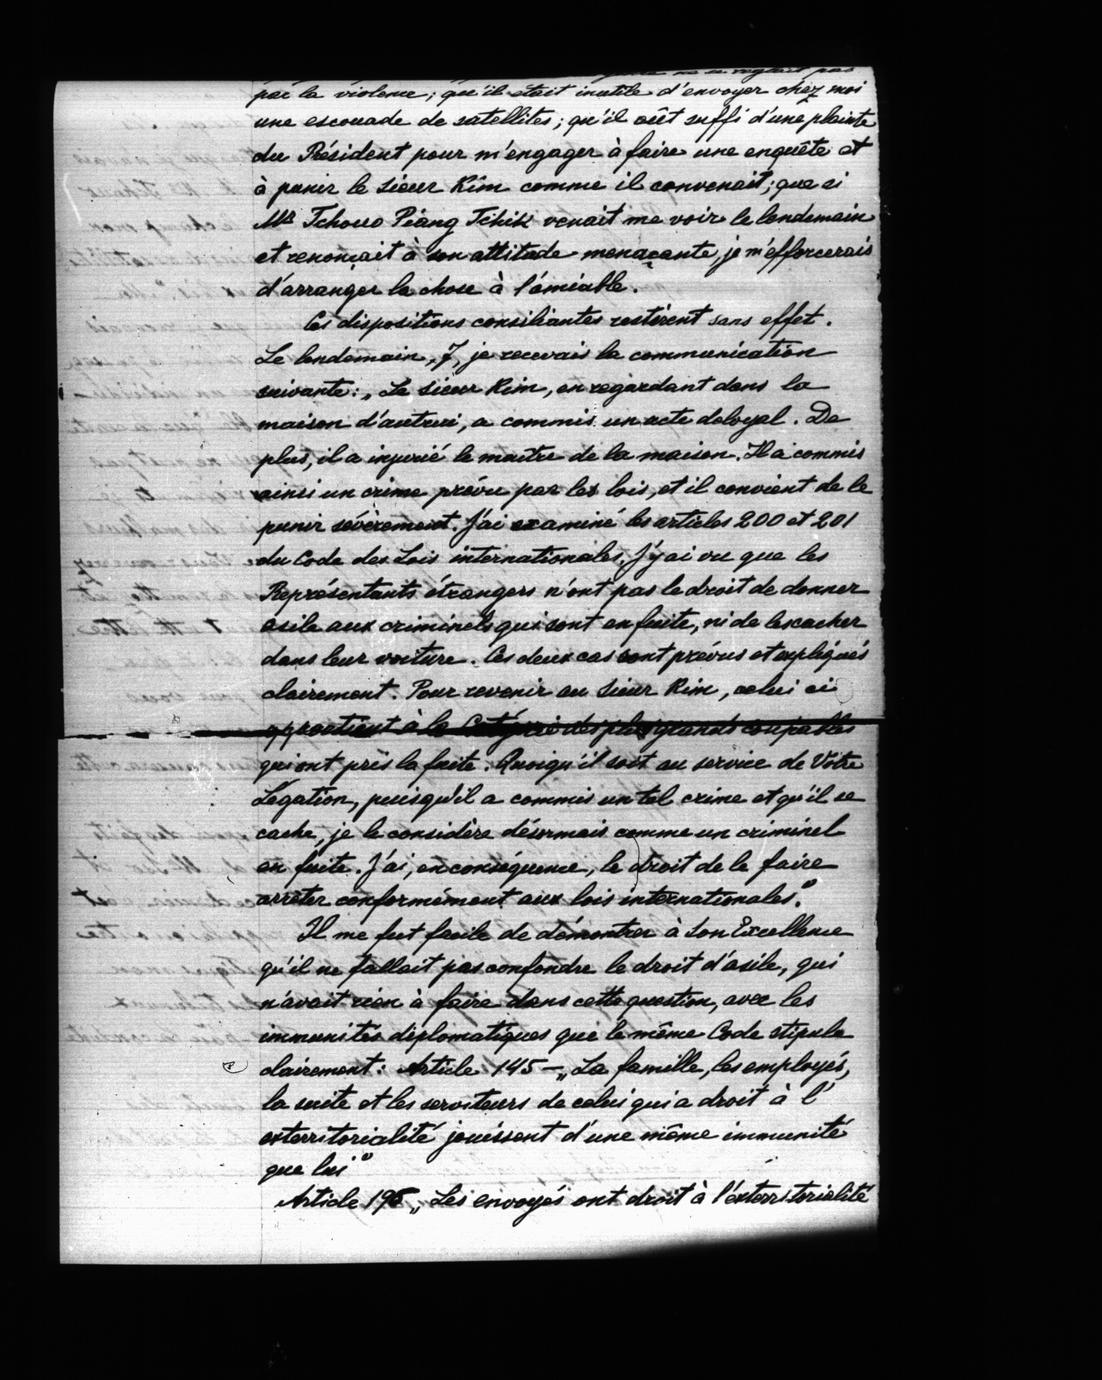 ne se réglait pas
par la violence; qu'il était inutile d'envoyer chez moi
une escouade de satellites; qu'il eût suffi d'une plainte
du Président pour m'engager à faire une enquête et
à punir le sieur Kim comme il convenait; que si
Mr Tchouo Piang Tchik venait me voir le lendemain
et renonçait à son attitude menaçante, je m'efforcerais
d'arranger la chose à l'amiable.
Ces dispositions conciliantes restèrent sans effet.
Le lendemain, 7, je recevais la communication
suivante: „Le sieur Kim, en regardant dans la
maison d'autrui, a commis un acte déloyal. De
plus, il a injurié le maître de la maison. Il a commis
ainsi un crime prévu par les lois, et il convient de le
punir sévèrement. J'ai examiné les articles 200 et 201
du Code des Lois internationales. J'y ai vu que les
Représentants étrangers n'ont pas le droit de donner
asile aux criminels qui sont en fuite, ni de les cacher
dans leur voiture. Ces deux cas sont prévus et expliqués
clairement. Pour revenir au sieur Kim, celui ci
appartient à la Catégorie des plus grands coupables
qui ont pris la fuite. Quoiqu'il soit au service de Vôtre
Légation, puisqu'il a commis un tel crime et qu'il se
cache, je le considère désormais comme un criminel
en fuite. J'ai, en conséquence, le droit de le faire
arrêter conformément aux lois internationales."
Il me fut facile de démontrer à Son Excellence
qu'il ne fallait pas confondre le droit d'asile, qui
n'avait rien à faire dans cette question, avec les
immunités diplomatiques que le même Code stipule
clairement: Article 145 — „La famille, les employés,
la suite et les serviteurs de celui qui a droit à l'
exterritorialité jouissent d'une même immunité
que lui"
Article 196 „Les envoyés ont droit à l'exterritorialité